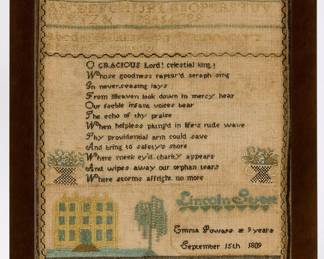 ABCDEFGHIJKLMNOPQRSTUV
O GRACIOUS Lord! celestial king!
Whose goodness raptur'd seraph sing
In never ceasing lays
From Heaven look down in mercy hear
Our feeble infant voices bear
The echo of thy praise
When helpless plung'd in life's rude wave
Thy providential arm could save
And bring to safety's shore
Where meek ey'd charity appears
And wipes away our orphan tears
Where storms affright no more
Lincoln
Emma Powars æ 9 years
September 15th 1809